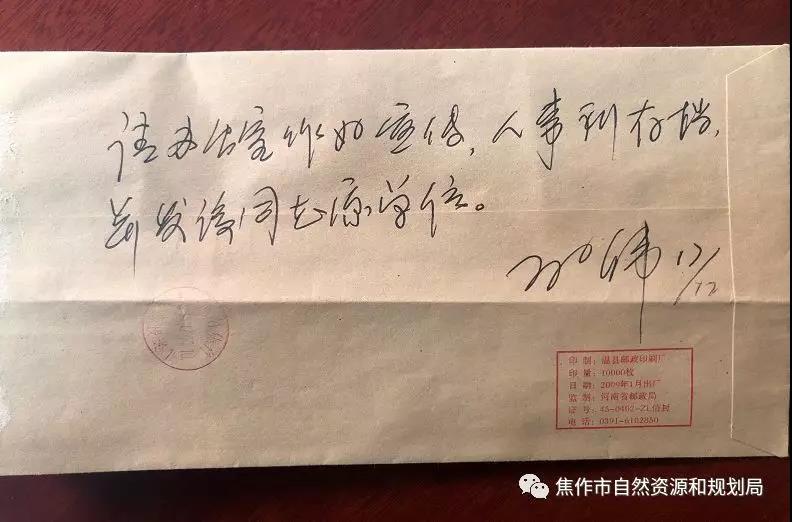 请办公室作好宣传，人事科存档，
并发该同志原单位。
印 制：温县邮政印刷厂
印 量：10000枚
日 期：2009年1月出厂
监 制：河南省邮政局
证 号：45-0402-ZL信封
电 话：0391-6102850
焦作市自然资源和规划局